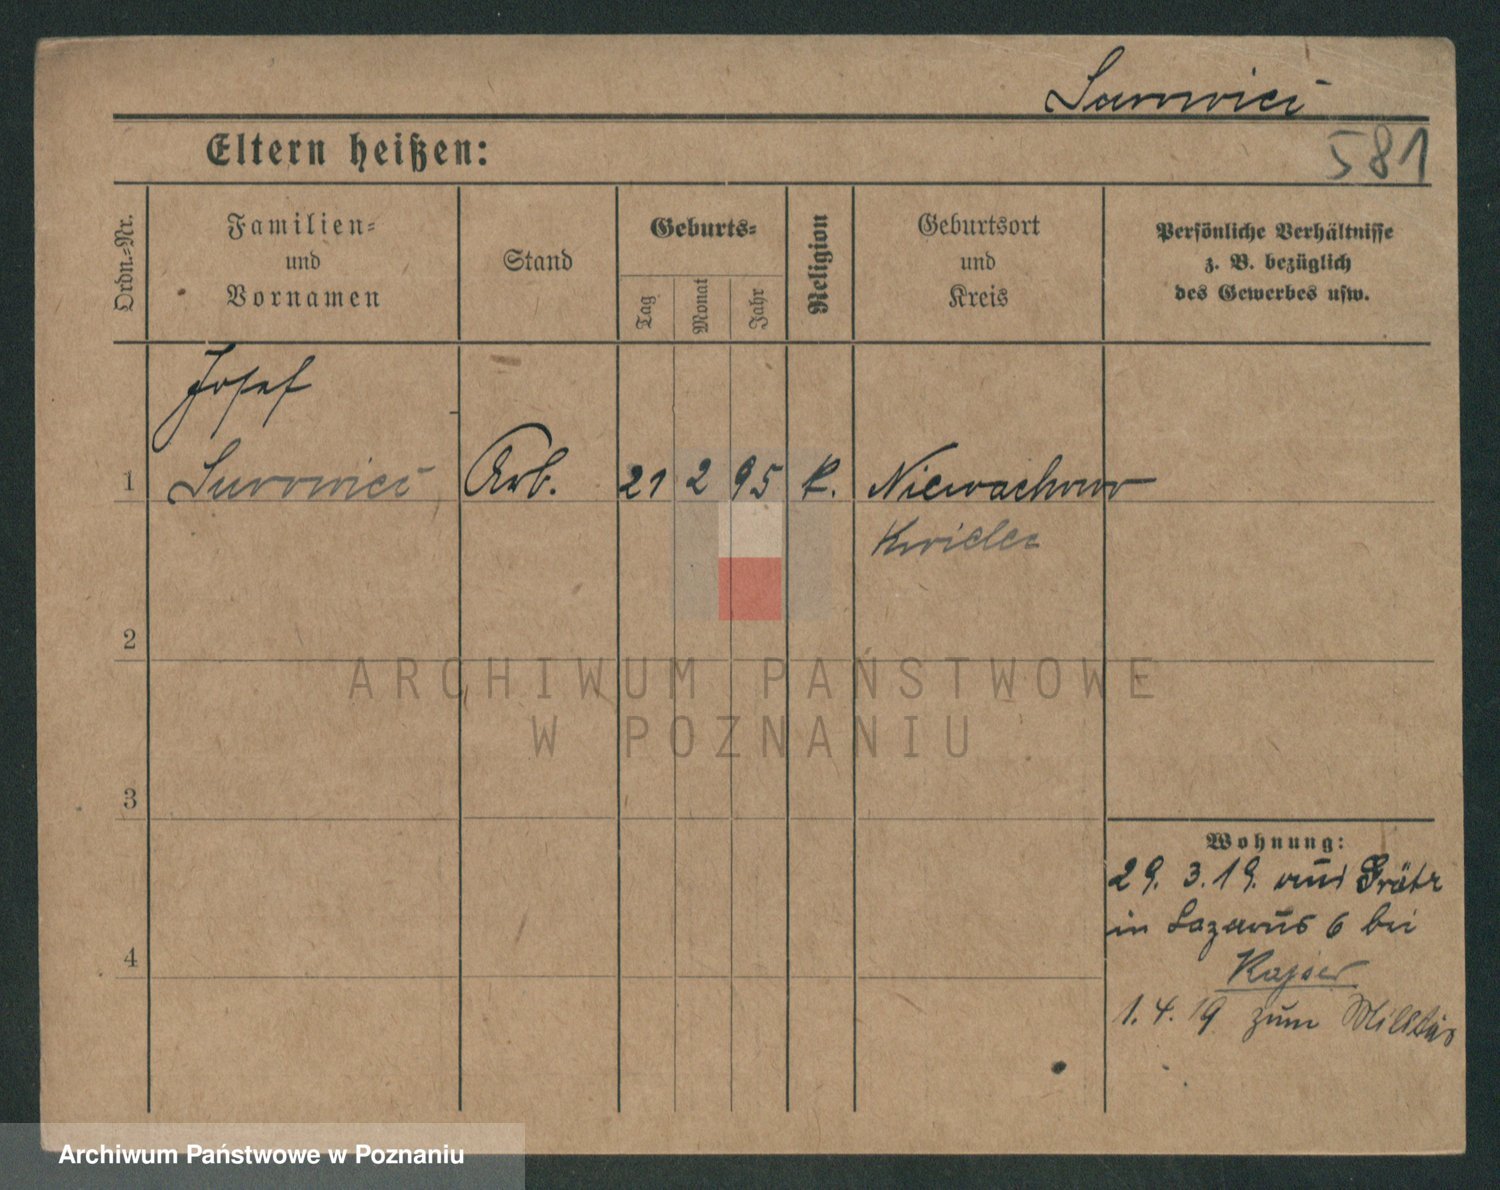 Surowicz
Eltern heißen:
581
Ordn.-Nr.
Familien-
und
Vornamen
Stand
Geburts-
Tag
Monat
Jahr
Religion
Geburtsort
und
Kreis
Persönliche Verhältnisse
z. B. bezüglich
des Gewerbes usw.
Josef
1 Surowicz Arb. 21 2 95 k. Niewachowo
2
ARCHIWUM PAŃSTWOWE
W POZNANIU
3
Wohnung:
29. 3. 19. aus Grätz
in Lazarus 6 bei
4
Kajser
1. 4. 19 zum Militär
Archiwum Państwowe w Poznaniu